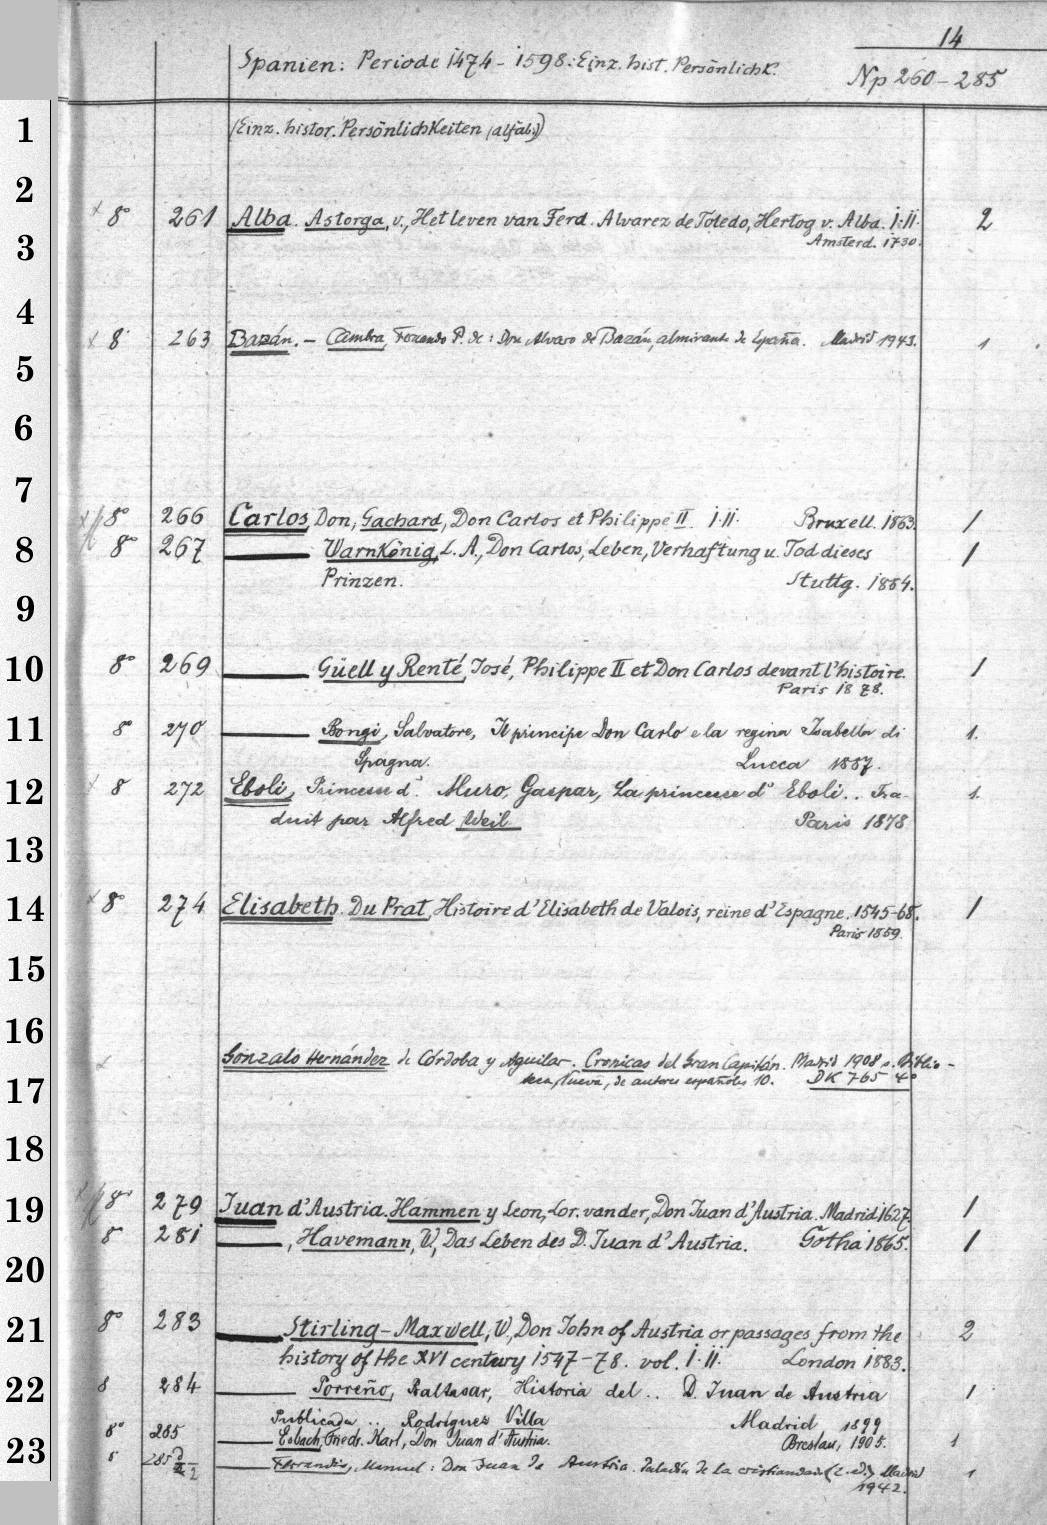 14
Spanien: Periode 1474 - 1598: Einz. hist. Persönlichk.
Np 260 - 285
1
(Einz. histor. Persönlichkeiten (alfab.))
2
8° 261 Alba. Astorga, v., Het leven van Ferd. Alvarez de Toledo, Hertog v. Alba. I.II. 2
Amsterd. 1730.
3
4
8° 263 Bazán. - Cambra, Fernando P. de: Don Alvaro de Bazán, almirante de España. Madrid 1943. 1
5
6
7
8° 266 Carlos, Don, Gachard, Don Carlos et Philippe II I.II. Bruxell. 1863. 1
8
8° 267 — Warnkönig, L. A., Don Carlos, Leben, Verhaftung u. Tod dieses 1
Prinzen. Stuttg. 1864.
9
10
8° 269 — Güell y Renté, José, Philippe II et Don Carlos devant l'histoire. 1
Paris 1878.
11
8° 270 — Bongi, Salvatore, Il principe Don Carlo e la regina Isabella di 1.
Spagna. Lucca 1887.
12
8° 272 Eboli, Princesse d'. Muro, Gaspar, La princesse d' Eboli.. Tra- 1.
duit par Alfred Weil Paris 1878
13
14
8° 274 Elisabeth. Du Prat, Histoire d'Elisabeth de Valois, reine d'Espagne. 1545-68. 1
Paris 1859.
15
16
Gonzalo Hernández de Córdoba y Aguilar. Cronicas del Gran Capitán. Madrid 1908 s. Biblio-
teca, Nueva, de autores españoles 10. DK 765 4°
17
18
19
8° 279 Juan d'Austria. Hammen y Leon, Lor. van der, Don Juan d'Austria. Madrid 1627. 1
8° 281 —, Havemann, W., Das Leben des D. Juan d'Austria. Gotha 1865. 1
20
21
8° 283 — Stirling-Maxwell, W., Don John of Austria or passages from the 2
history of the XVI century 1547-78. vol. I.II. London 1883.
22
8 284 — Porreño, Baltasar, Historia del .. D. Juan de Austria 1
Publicada .. Rodríguez Villa Madrid 1899
8° 285 — Esbach, Friedr. Karl, Don Juan d'Austria. Breslau, 1905. 1
23
285 — Ferrandis, Manuel: Don Juan de Austria. Paladín de la cristiandad (2. ed.) Madrid 1
1942.